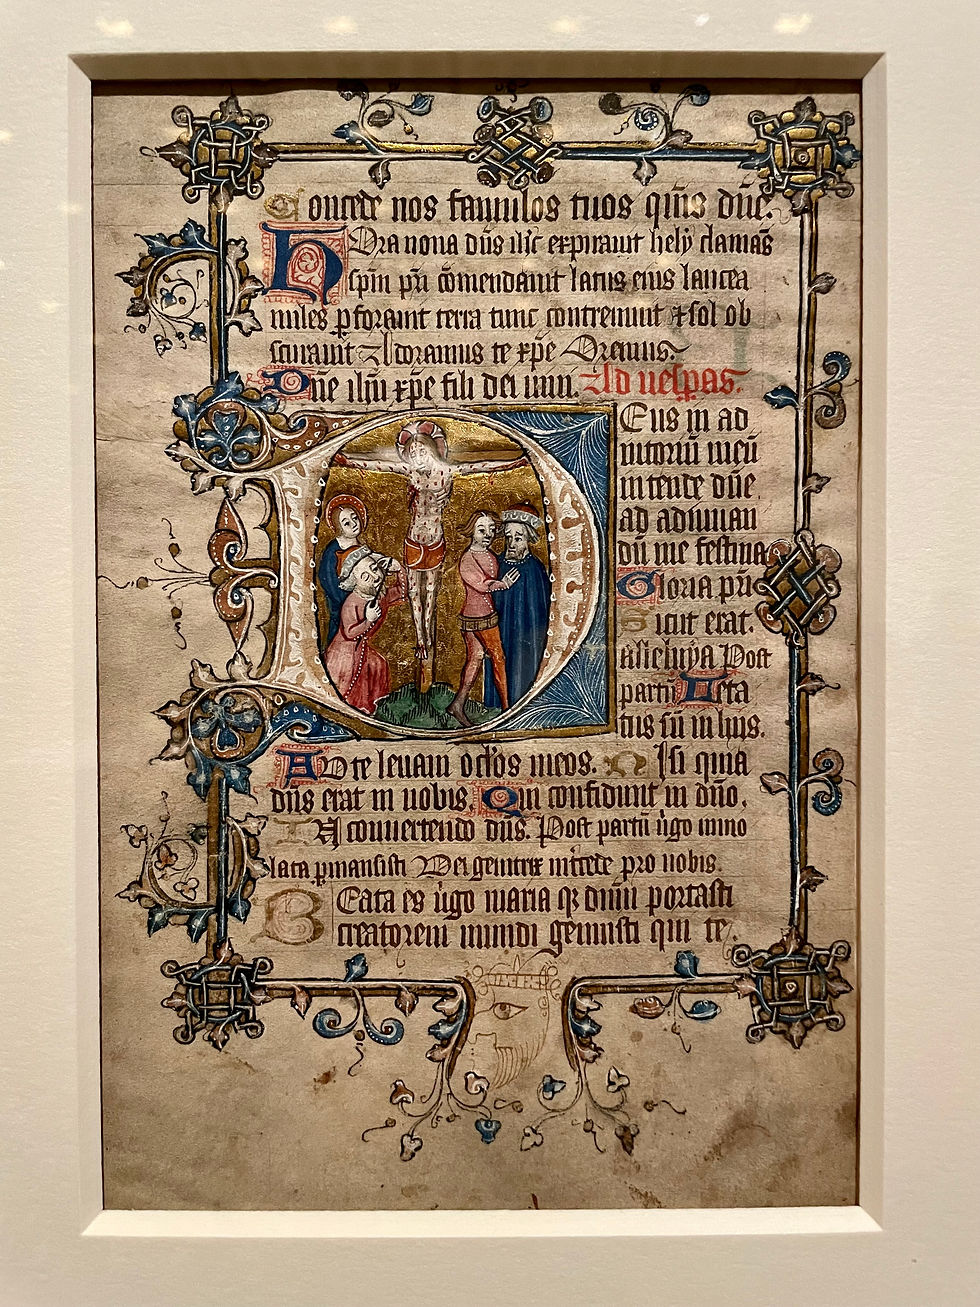 Concede nos famulos tuos quis dūe.
Hora nona dūs ihc expirauit hely clamās
spm pri cōmendauit latus eius lancea
miles pforauit terra tunc contremuit & sol ob
scurauit Adoramus te xpe Oremus.
Dūe ihu xpe fili dei uiui. Ad uespas.
Deus in ad
iutoriū meū
intente dūe
ad adiuuan
dū me festina
Gloria pri
Sicut erat.
Alleluya Post
partū Leta
tus sū in hiis.
AD te leuaui oclos meos. Nisi quia
dūs erat in nobis Qui confidunt in dūo.
IN conuertendo dūs. Post partū uirgo inuio
lata pmansisti Dei genitrix intcede pro nobis.
BEata es uirgo maria q dnm portasti
creatorem mundi genuisti qui te.